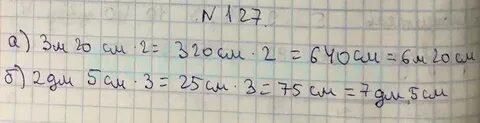 N 127.
а) 3м 20 см · 2 = 320 см · 2 = 640 см = 6м 20 см
б) 2 дм 5 см · 3 = 25 см · 3 = 75 см = 7 дм 5 см